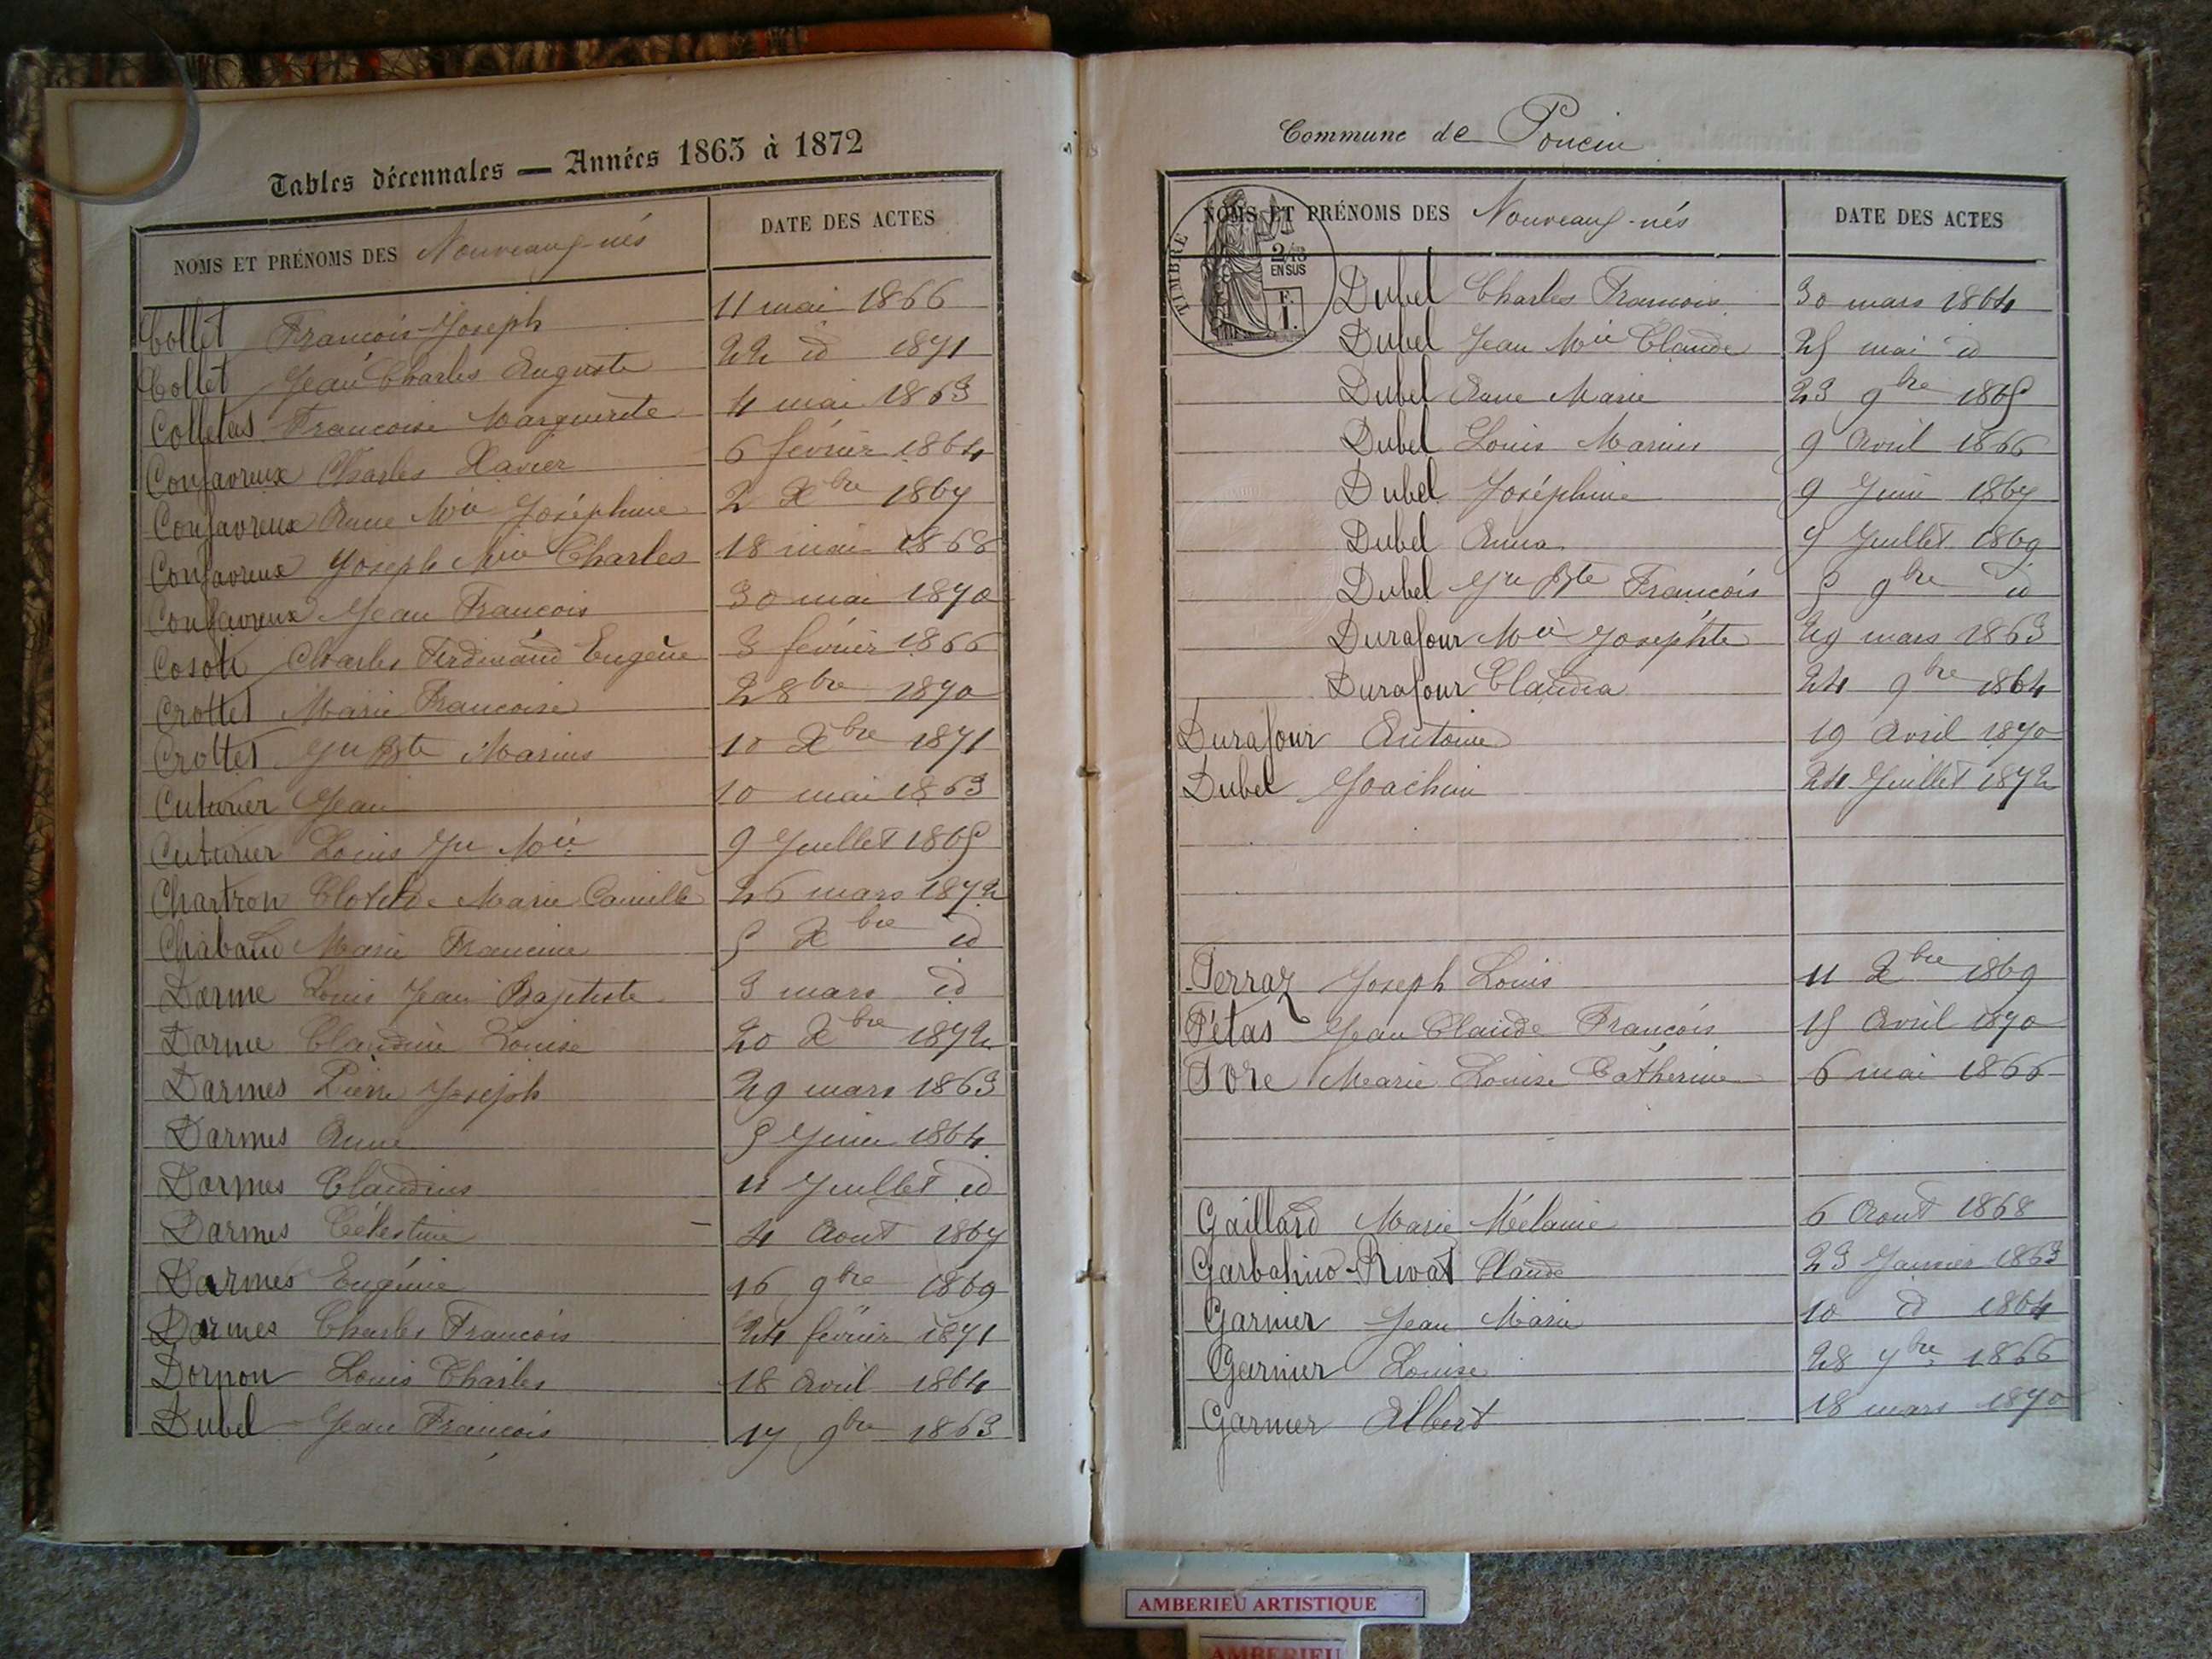 Tables décennales — Années 1863 à 1872
NOMS ET PRÉNOMS DES Nouveaux-nés DATE DES ACTES
Collet François Joseph 11 mai 1866
Collet Jean Charles Auguste 22 id 1871
Colletas Françoise Marguerite 4 mai 1863
Confavreux Charles Xavier 6 février 1864
Confavreux Anne Mie Joséphine 2 Xbre 1867
Confavreux Joseph Mie Charles 18 mai 1868
Confavreux Jean François 30 mai 1870
Charles Ferdinand Eugène 3 février 1866
Crottet Marie Françoise 2 8bre 1870
Crottet Jn Bte Marius 10 Xbre 1871
Cuturier Jean 10 mai 1863
Cuturier Louis Jn Mie 9 Juillet 1865
Chartron Clotilde Marie Camille 26 mars 1872
Chabaud Marie Francine 5 Xbre id
Darme Louis Jean Baptiste 3 mars id
Darme Claudine Louise 20 Xbre 1872
Darmes Pierre Joseph 29 mars 1863
Darmes Anne 5 Juin 1864
Darmes Claudius 11 Juillet id
Darmes Célestine 4 Aout 1867
Darmes Eugénie 16 9bre 1869
Darmes Charles François 24 février 1871
Dorpon Louis Charles 18 Avril 1864
Dubel Jean François 17 9bre 1863
Commune de Poncin
NOMS ET PRÉNOMS DES Nouveaux-nés DATE DES ACTES
TIMBRE
2/10
EN SUS
F.
1.
Dubel Charles François 30 mars 1864
Dubel Jean Mie Claude 25 mai id
Dubel Anne Marie 23 9bre 1865
Dubel Louis Marius 9 Avril 1866
Dubel Joséphine 9 Juin 1867
Dubel Anna 5 Juillet 1869
Dubel Jn Bte François 5 9bre id
Durafour Mie Josephte 29 mars 1863
Durafour Claudia 24 9bre 1864
Durafour Antoine 19 Avril 1870
Dubel Joachim 24 Juillet 1872
Ferraz Joseph Louis 11 Xbre 1869
Fétas Jean Claude François 15 Avril 1870
Fore Marie Louise Catherine 6 mai 1866
Gaillard Marie Mélanie 6 Aout 1868
Garbahno-Rivat Claude 23 Janvier 1863
Garnier Jean Marie 10 id 1864
Garnier Louise 28 7bre 1866
Garnier Albert 18 mars 1870
AMBERIEU ARTISTIQUE
AMBERIEU